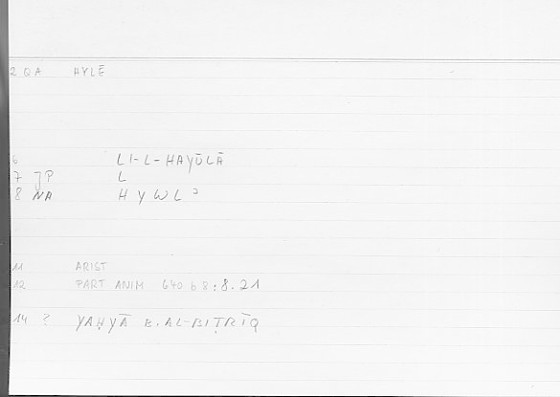 2 QA HYLĒ
6 LI-L-HAYŪLĀ
7 JP L
8 NA HYWLʾ
11 ARIST
12 PART ANIM 640 b 8:8.21
14 ? YAḤYĀ B. AL-BIṬRĪQ